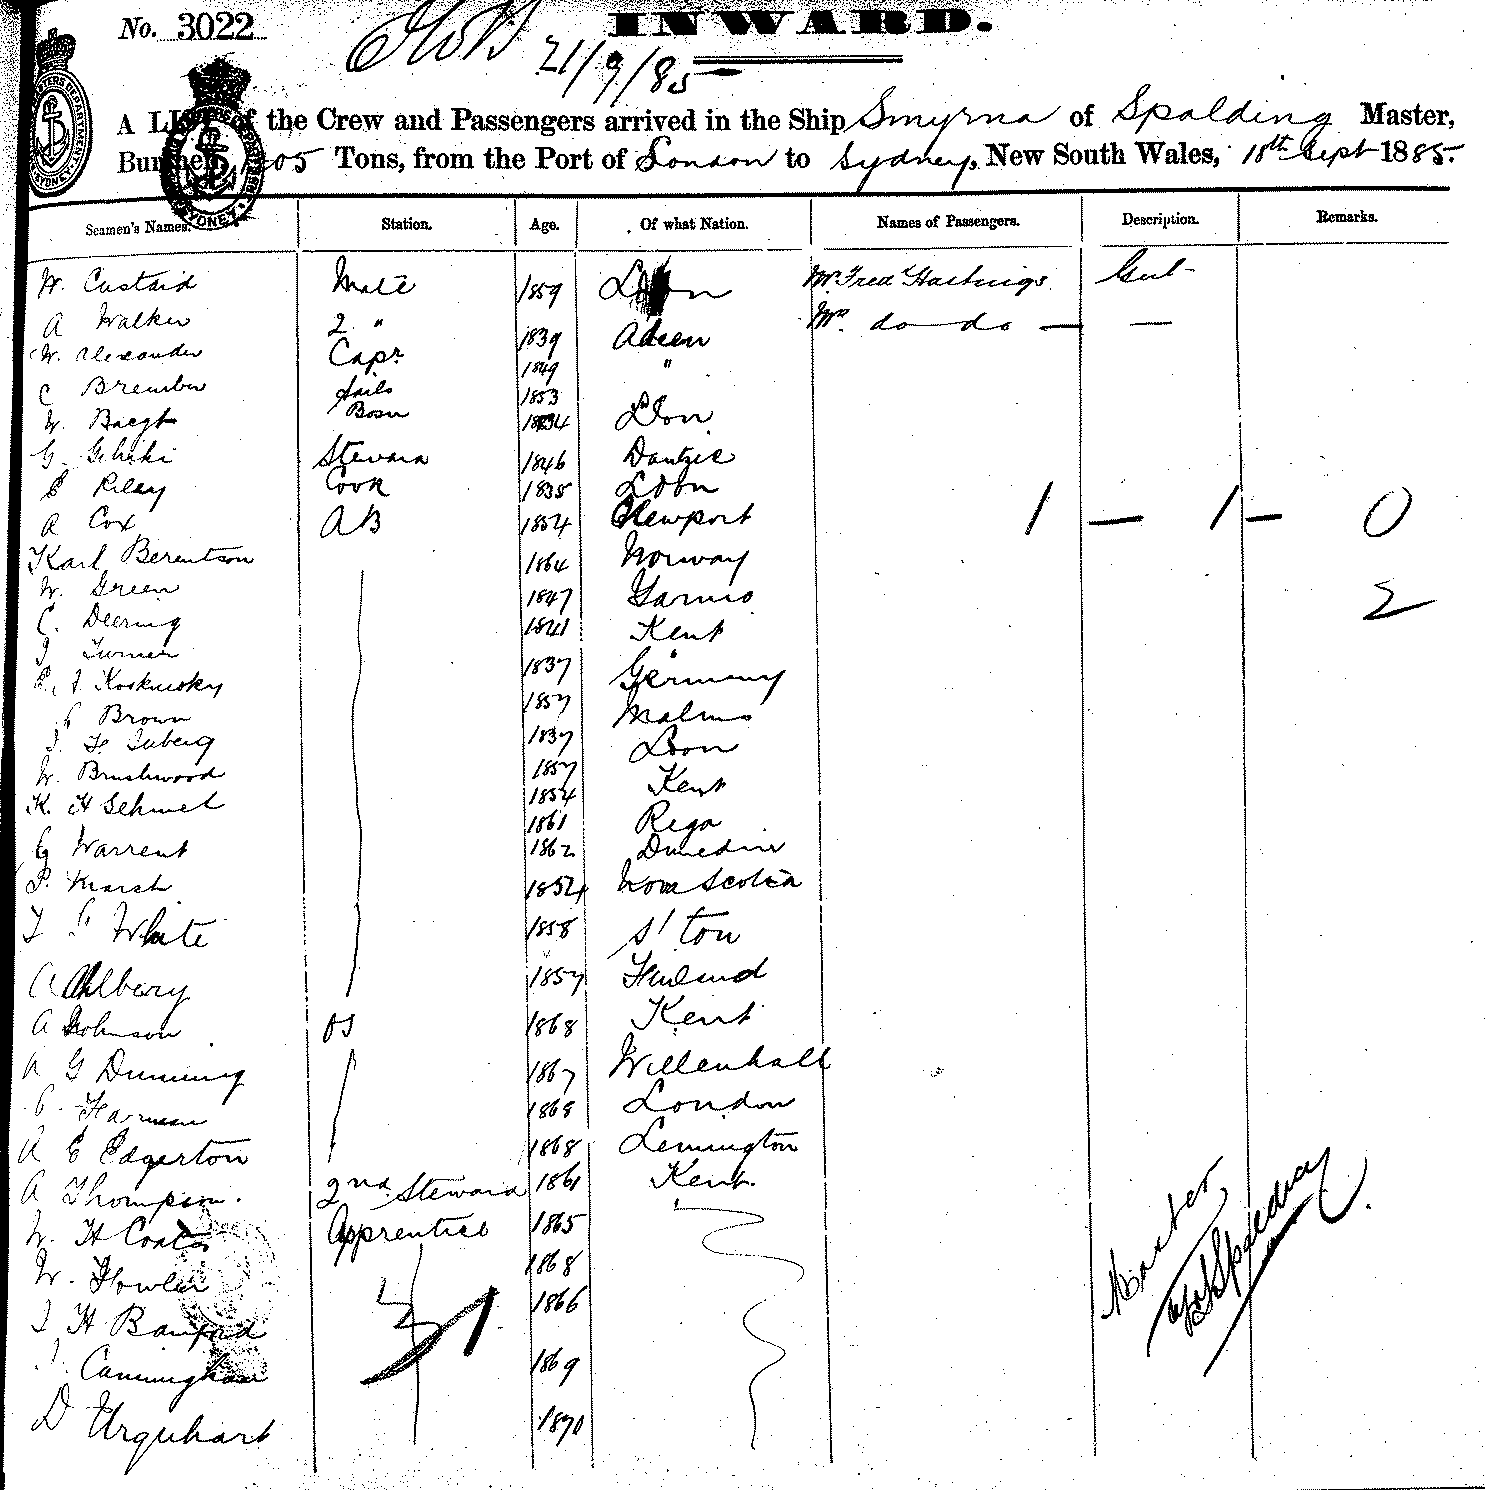 No. 3022
INWARD.
21/9/85
A LIST of the Crew and Passengers arrived in the Ship Smyrna of Spalding Master,
Burthen 1305 Tons, from the Port of London to Sydney, New South Wales, 18th Sept 1885.
Seamen's Names. Station. Age. Of what Nation. Names of Passengers. Description. Remarks.
W. Custaid Mate 1859 Ldon Mr. Fred Hastings
A Walker 2 " 1839 Adeen Mrs. do do — —
W. Alexander Capr 1849 "
C Brember Sails 1853
W. Bosn 1834 Ldon
G. Steward 1846 Dantzic
E Riley Cook 1835 Ldon
A Cox AB 1854 Newport 1 — 1 — 0
Karl Berentson 1864 Norway
W. Green 1847 2
C. Deering 1841 Kent
J Turner 1837 Germany
1857 Malmo
C Brown 1837 Ldon
J. F. 1857 Kent
W. Brushwood 1854 Riga
K. H Sehmel 1861 Dunedin
G Warrent 1862
P. Marsh 1854 Nova Scotia
T G White 1858 S'ton
A Ahlbery 1857 Finland
A Johnson OS 1868 Kent
A G Dunning 1867 Willenhall
C. Harman 1868 London
A E Edgerton 1868 Lemington
A Thompson. 2nd Steward 1861 Kent.
W. H Coates Apprentice 1865
W. Fowler 1868
J H Banford 1866
J. Cunningham 1869
D Urquhart 1870
31